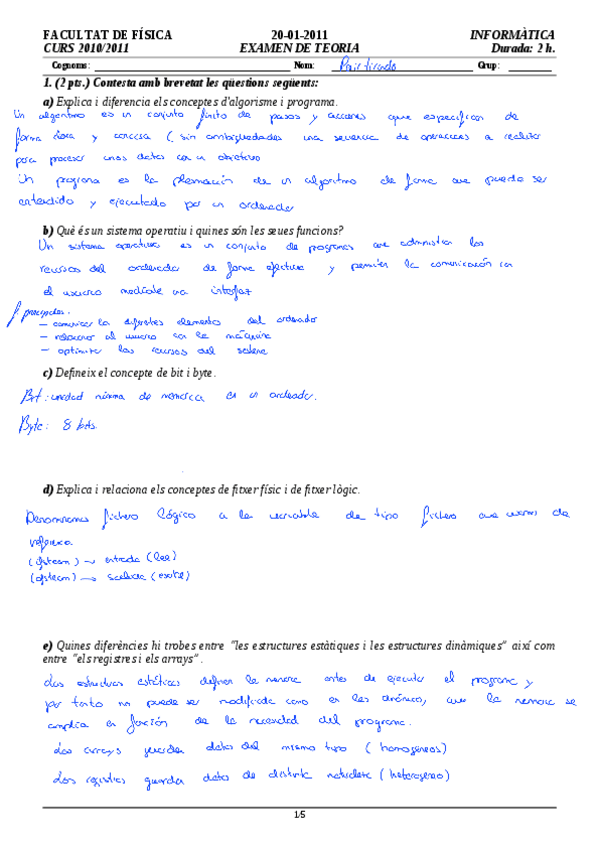 FACULTAT DE FÍSICA 20-01-2011 INFORMÀTICA
CURS 2010/2011 EXAMEN DE TEORIA Durada: 2 h.
Cognoms: Nom: Practicado Grup:
1. (2 pts.) Contesta amb brevetat les qüestions següents:
a) Explica i diferencia els conceptes d'algorisme i programa.
Un algoritmo es un conjunto finito de pasos y acciones que especifican de
forma clara y concisa (sin ambigüedades una secuencia de operaciones a realizar
para procesar unos datos con un objetivo
Un programa es la plasmación de un algoritmo de forma que pueda ser
entendido y ejecutado por un ordenador
b) Què és un sistema operatiu i quines són les seues funcions?
Un sistema operativo es un conjunto de programas que administran los
recursos del ordenador de forma efectiva y permiten la comunicación con
el usuario mediante una interfaz
f. principales.
– comunicar los diferentes elementos del ordenador
– relacionar al usuario con la máquina
– optimizar los recursos del sistema
c) Defineix el concepte de bit i byte.
Bit: unidad mínima de memoria en un ordenador.
Byte: 8 bits.
d) Explica i relaciona els conceptes de fitxer físic i de fitxer lògic.
Denominamos fichero lógico a la variable de tipo fichero que usamos de
referencia
(ifstream) → entrada (lee)
(ofstream) → salida (escribe)
e) Quines diferències hi trobes entre "les estructures estàtiques i les estructures dinàmiques" així com
entre "els registres i els arrays" .
Las estructuras estáticas definen la memoria antes de ejecutar el programa y
por tanto no puede ser modificada como en las dinámicas, que la memoria se
amplia en función de la necesidad del programa.
Los arrays guardan datos del mismo tipo (homogéneos)
Los registros guardan datos de distinta naturaleza (heterogéneo)
1/5